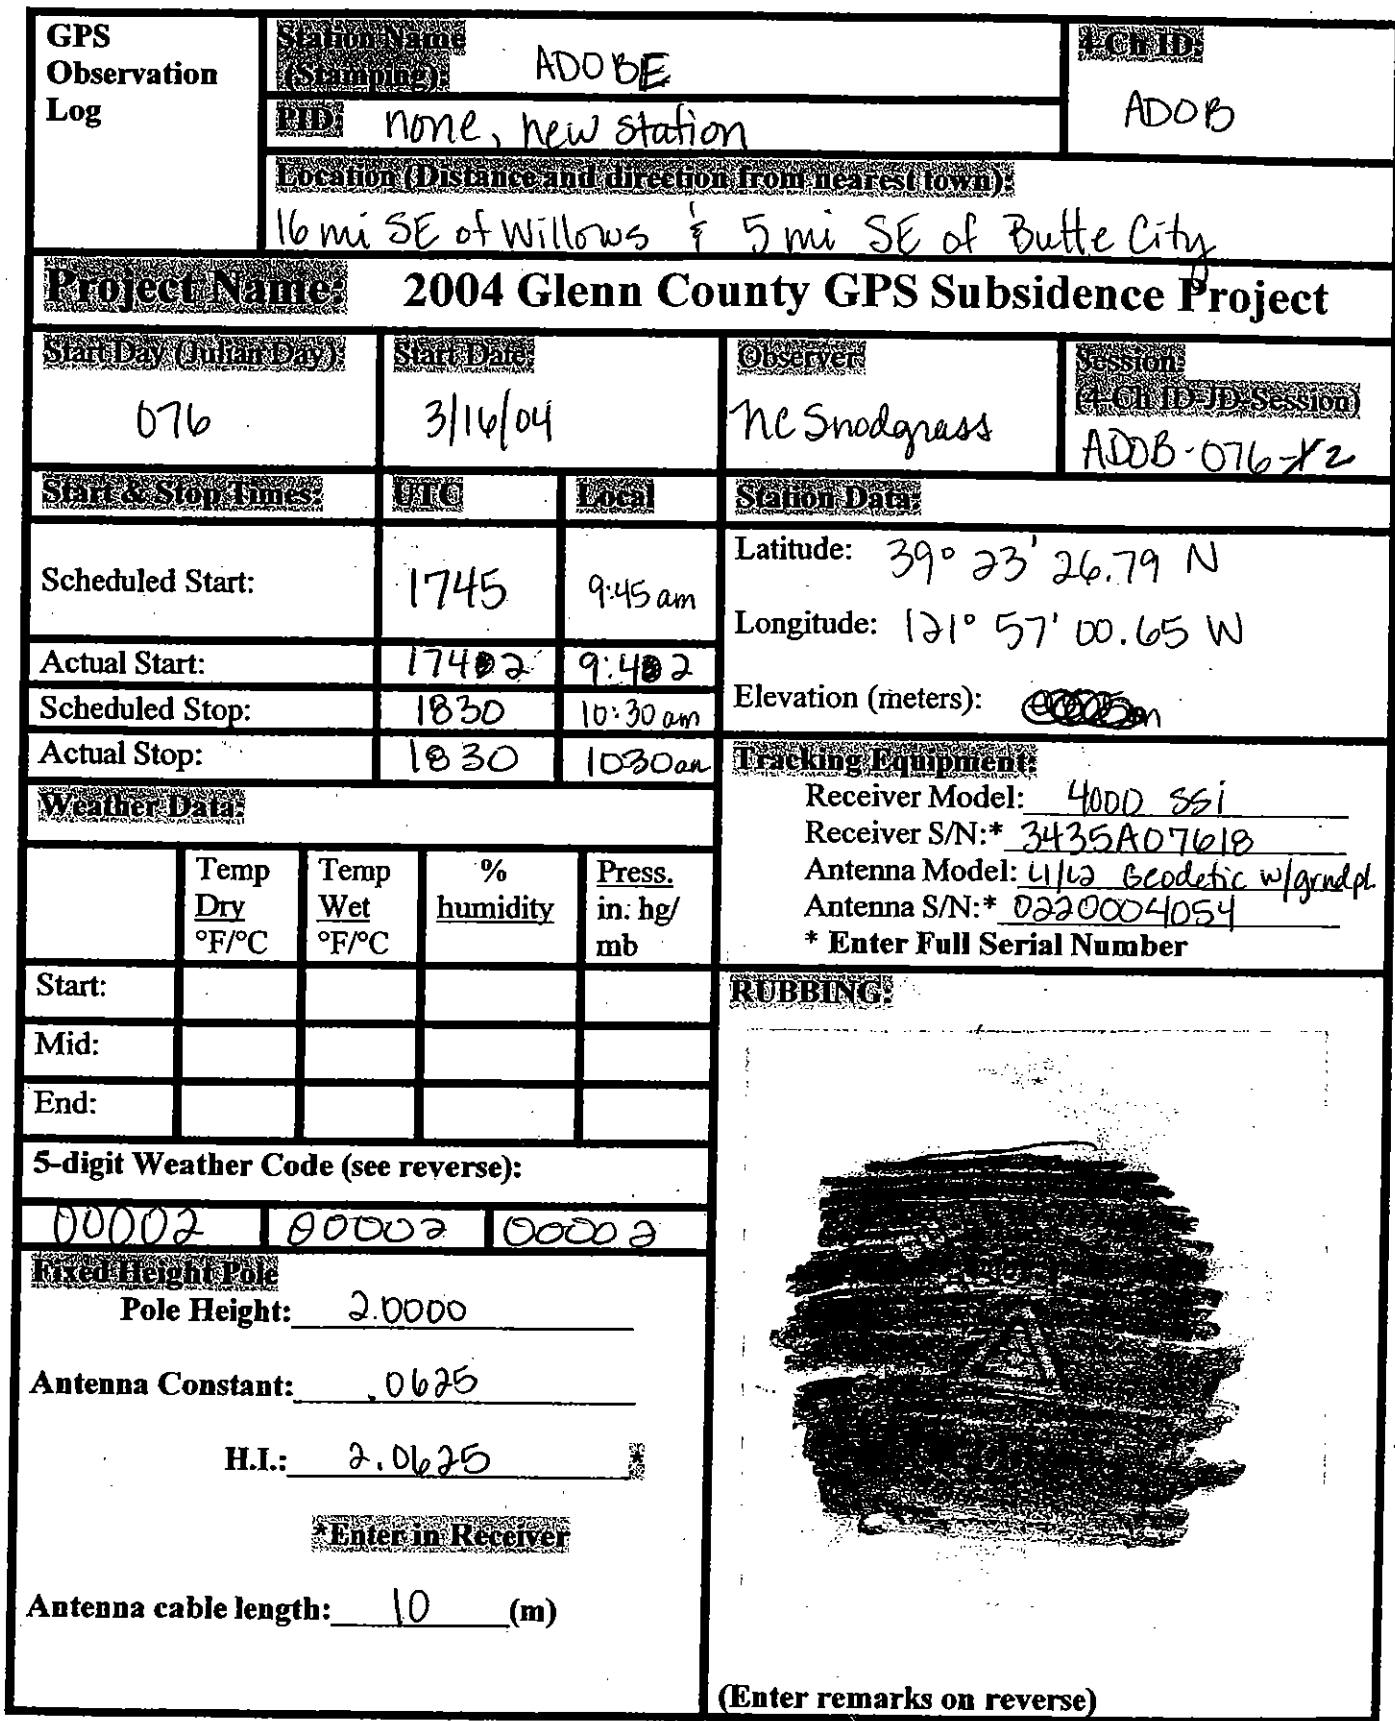 GPS Observation Log
Station Name (Stamping): ADOBE
4-Ch ID: ADOB
PID: none, new station
Location (Distance and direction from nearest town):
16 mi SE of Willows & 5 mi SE of Butte City
Project Name: 2004 Glenn County GPS Subsidence Project
Start Day (Julian Day): 076
Start Date: 3/16/04
Observer: NC Snodgrass
Session: (4-Ch ID-JD-Session)
ADOB-076-2
Start & Stop Times: UTC Local
Scheduled Start: 1745 9:45 am
Actual Start: 1742 9:42
Scheduled Stop: 1830 10:30 am
Actual Stop: 1830 1030am
Station Data:
Latitude: 39° 23' 26.79 N
Longitude: 121° 57' 00.65 W
Elevation (meters):
Tracking Equipment:
Receiver Model: 4000 SSi
Receiver S/N:* 3435A07618
Antenna Model: L1/L2 Geodetic w/grndpl.
Antenna S/N:* 0220004054
* Enter Full Serial Number
Weather Data:
Temp Dry °F/°C
Temp Wet °F/°C
% humidity
Press. in. hg/ mb
Start:
Mid:
End:
5-digit Weather Code (see reverse):
00002 00002 00002
Fixed Height Pole
Pole Height: 2.0000
Antenna Constant: .0625
H.I.: 2.0625 *
*Enter in Receiver
Antenna cable length: 10 (m)
RUBBING:
(Enter remarks on reverse)